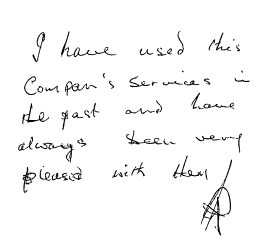 I have used this
Compan's services in
the past and have
always been very
pleased with them